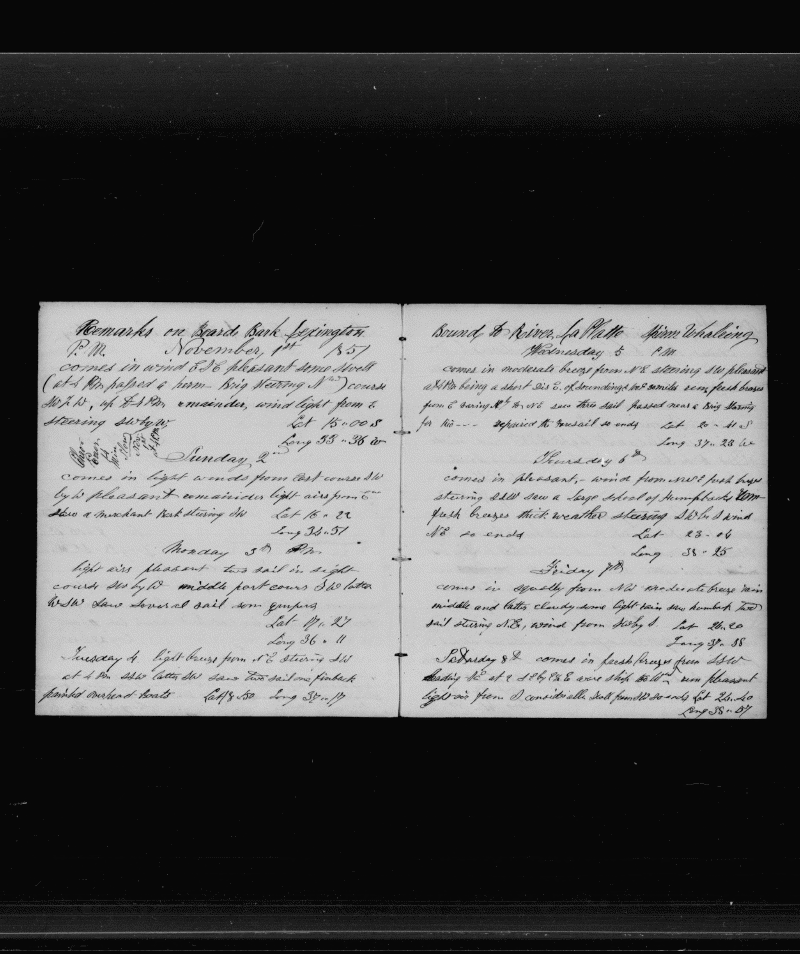 Remarks on Board Bark Lexington
P.M. November, 1st 1851
comes in wind ESE pleasant some swell
(at 4 Pm passed a herm Brig steering N) course
up to 4 Pm remainder, wind light from E
steering SW by W Lat 15 " 00 S
Long 33 " 36 W
Sunday 2
comes in light winds from East course SW
by W pleasant remainder light airs from E
saw a merchant Bark steering SW Lat 15 " 22
Long 34 " 51
Monday 3d Pm
light airs pleasant two sail in sight
course SW by W middle part cours SW latter
WSW saw several sail som grampus
Lat 17 " 27
Long 36 " 11
Tuesday 4 light breezes from NE steering SW
at 4 Pm SSW latter SW saw two sail one finback
painted overhead boats Lat 18 " 50 Long 37 " 17
Bound to River La Platte Sperm Whaleing
Wednesday 5 P.M.
comes in moderate breeze from NE steering SW pleasant
at 4 Pm being a short dis E. of soundings miles rem, fresh breezes
from E to NE seen three sail passed near a Brig steering
for Rio --- repaired the foresail so ends Lat 20 " 41 S
Long 37 " 28 W
Thursday 6th
comes in pleasant, wind from NNE fresh breezes
steering SSW saw a large school of Humpbacks
fresh breezes thick weather steering SW by S wind
NE so ends Lat 23 " 04
Long 38 " 25
Friday 7th
comes in squally from NW moderate breeze rain
middle and latter cloudy some light rain saw humback two
sail steering N.E., wind from SW by S Lat 24 " 20
Long 39 " 38
Saturday 8th comes in fresh breezes from SSW
heading at 2 wore ship to W rem pleasant
light air from S considerable swell from SW so ends Lat 24 " 40
Long 38 " 07